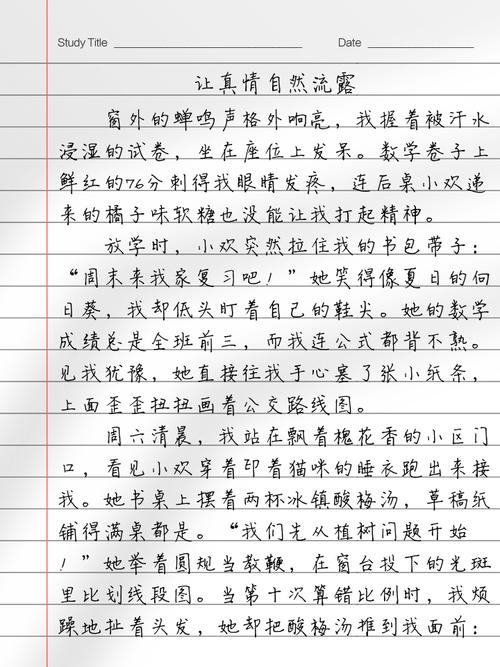 Study Title
Date
让真情自然流露
窗外的蝉鸣声格外响亮，我握着被汗水
浸湿的试卷，坐在座位上发呆。数学卷子上
鲜红的76分刺得我眼睛发疼，连后桌小欢递
来的橘子味软糖也没能让我打起精神。
放学时，小欢突然拉住我的书包带子：
“周末来我家复习吧！”她笑得像夏日的向
日葵，我却低头盯着自己的鞋尖。她的数学
成绩总是全班前三，而我连公式都背不熟。
见我犹豫，她直接往我手心塞了张小纸条，
上面歪歪扭扭画着公交路线图。
周六清晨，我站在飘着槐花香的小区门
口，看见小欢穿着印着猫咪的睡衣跑出来接
我。她书桌上摆着两杯冰镇酸梅汤，草稿纸
铺得满桌都是。“我们先从植树问题开始
！”她举着圆规当教鞭，在窗台投下的光斑
里比划线段图。当第十次算错比例时，我烦
躁地扯着头发，她却把酸梅汤推到我面前：